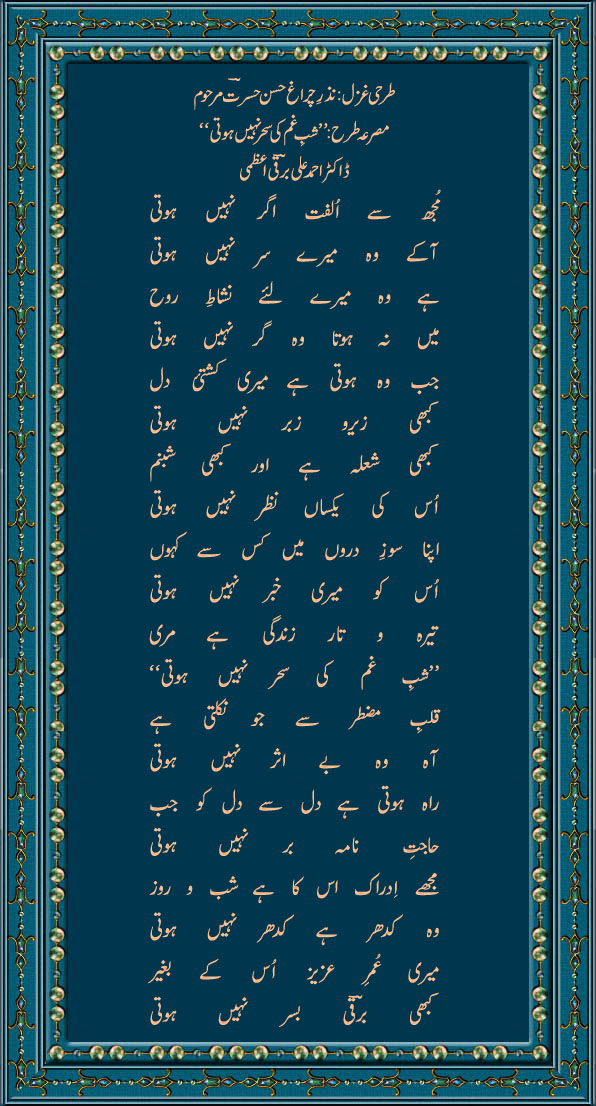 طرحی غزل: نذرِ چراغ حسن حسرتؔ مرحوم
مصرعہ طرح: ’’شبِ غم کی سحر نہیں ہوتی‘‘
ڈاکٹر احمد علی برقیؔ اعظمی
مُجھ سے اُلفت اگر نہیں ہوتی
آکے وہ میرے سر نہیں ہوتی
ہے وہ میرے لئے نشاطِ روح
میں نہ ہوتا وہ گر نہیں ہوتی
جب وہ ہوتی ہے میری کشتیٔ دل
کبھی زیرو زبر نہیں ہوتی
کبھی شعلہ ہے اور کبھی شبنم
اُس کی یکساں نظر نہیں ہوتی
اپنا سوزِ دروں میں کس سے کہوں
اُس کو میری خبر نہیں ہوتی
تیرہ و تار زندگی ہے مری
’’شبِ غم کی سحر نہیں ہوتی‘‘
قلبِ مضطر سے جو نکلتی ہے
آہ وہ بے اثر نہیں ہوتی
راہ ہوتی ہے دل سے دل کو جب
حاجتِ نامہ بر نہیں ہوتی
مجھے اِدراک اس کا ہے شب و روز
وہ کدھر ہے کدھر نہیں ہوتی
میری عُمرِ عزیز اُس کے بغیر
کبھی برقیؔ بسر نہیں ہوتی